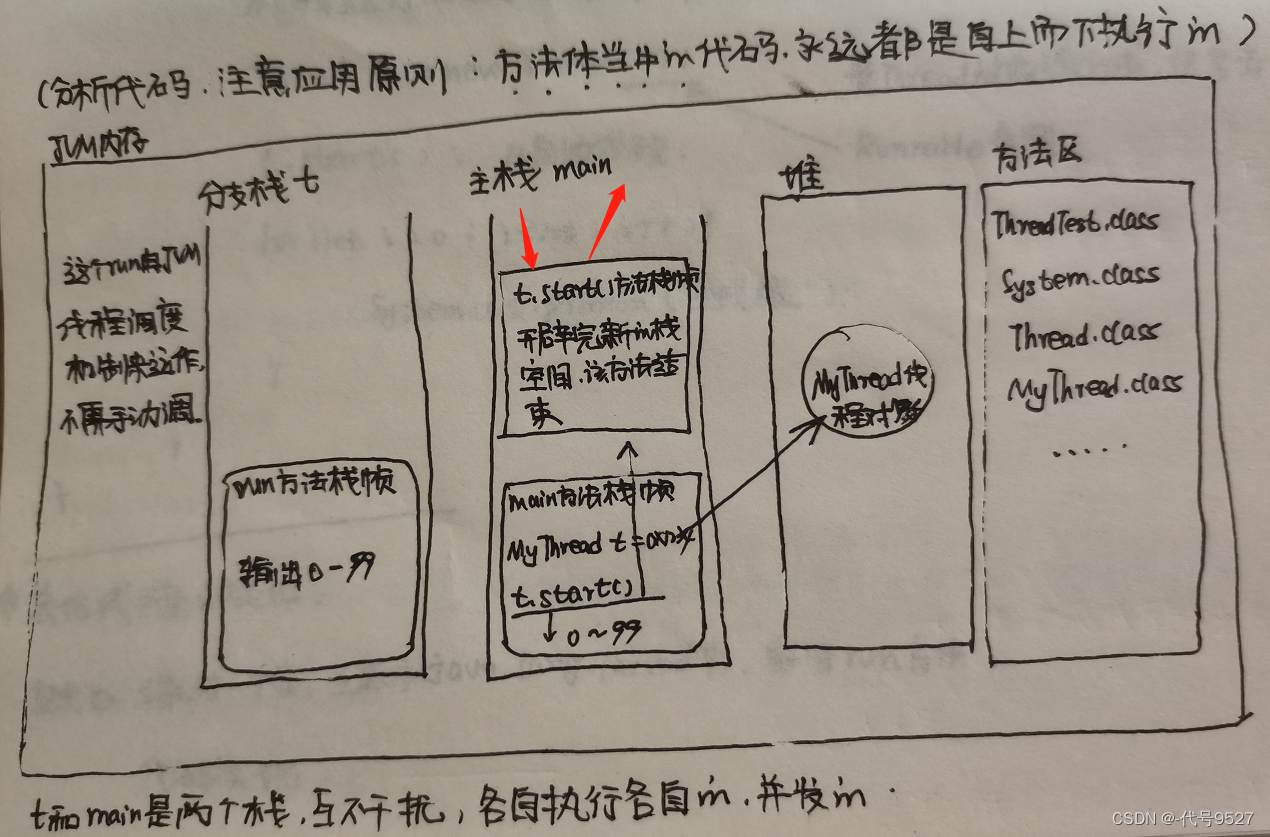 (分析代码.注意应用原则:方法体当中的代码.永远都是自上而下执行的)
JVM内存
分支栈 t
这个run由JVM
线程调度
机制来运作,
不用手动调.
run方法栈帧
输出0-99
主栈 main
t.start()方法栈帧
开辟完新的栈
空间.该方法结
束
main方法栈帧
MyThread t = 0x1234
t.start()
0~99
堆
MyThread线
程对象
方法区
ThreadTest.class
System.class
Thread.class
MyThread.class
.....
t和main是两个栈,互不干扰,各自执行各自的.并发的.
CSDN @-代号9527